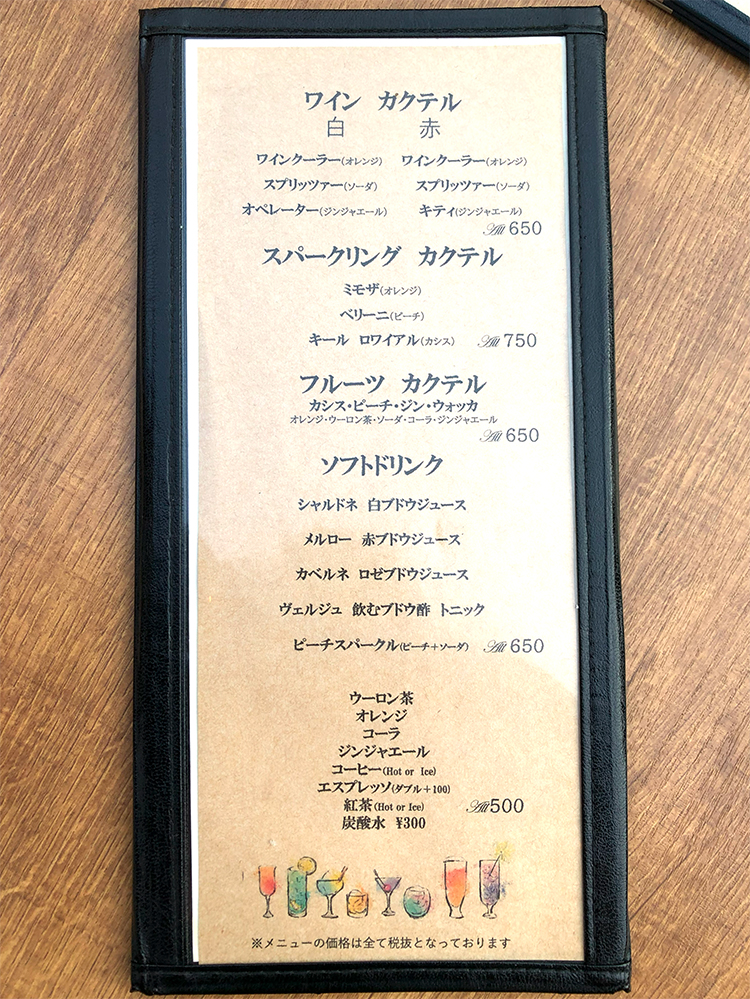 ワイン カクテル
白 赤
ワインクーラー(オレンジ) ワインクーラー(オレンジ)
スプリッツァー(ソーダ) スプリッツァー(ソーダ)
オペレーター(ジンジャエール) キティ(ジンジャエール)
All 650
スパークリング カクテル
ミモザ(オレンジ)
ベリーニ(ピーチ)
キール ロワイアル(カシス) All 750
フルーツ カクテル
カシス・ピーチ・ジン・ウォッカ
オレンジ・ウーロン茶・ソーダ・コーラ・ジンジャエール
All 650
ソフトドリンク
シャルドネ 白ブドウジュース
メルロー 赤ブドウジュース
カベルネ ロゼブドウジュース
ヴェルジュ 飲むブドウ酢 トニック
ピーチスパークル(ピーチ+ソーダ) All 650
ウーロン茶
オレンジ
コーラ
ジンジャエール
コーヒー(Hot or Ice)
エスプレッソ(ダブル+100)
紅茶(Hot or Ice) All 500
炭酸水 ¥300
※メニューの価格は全て税抜となっております